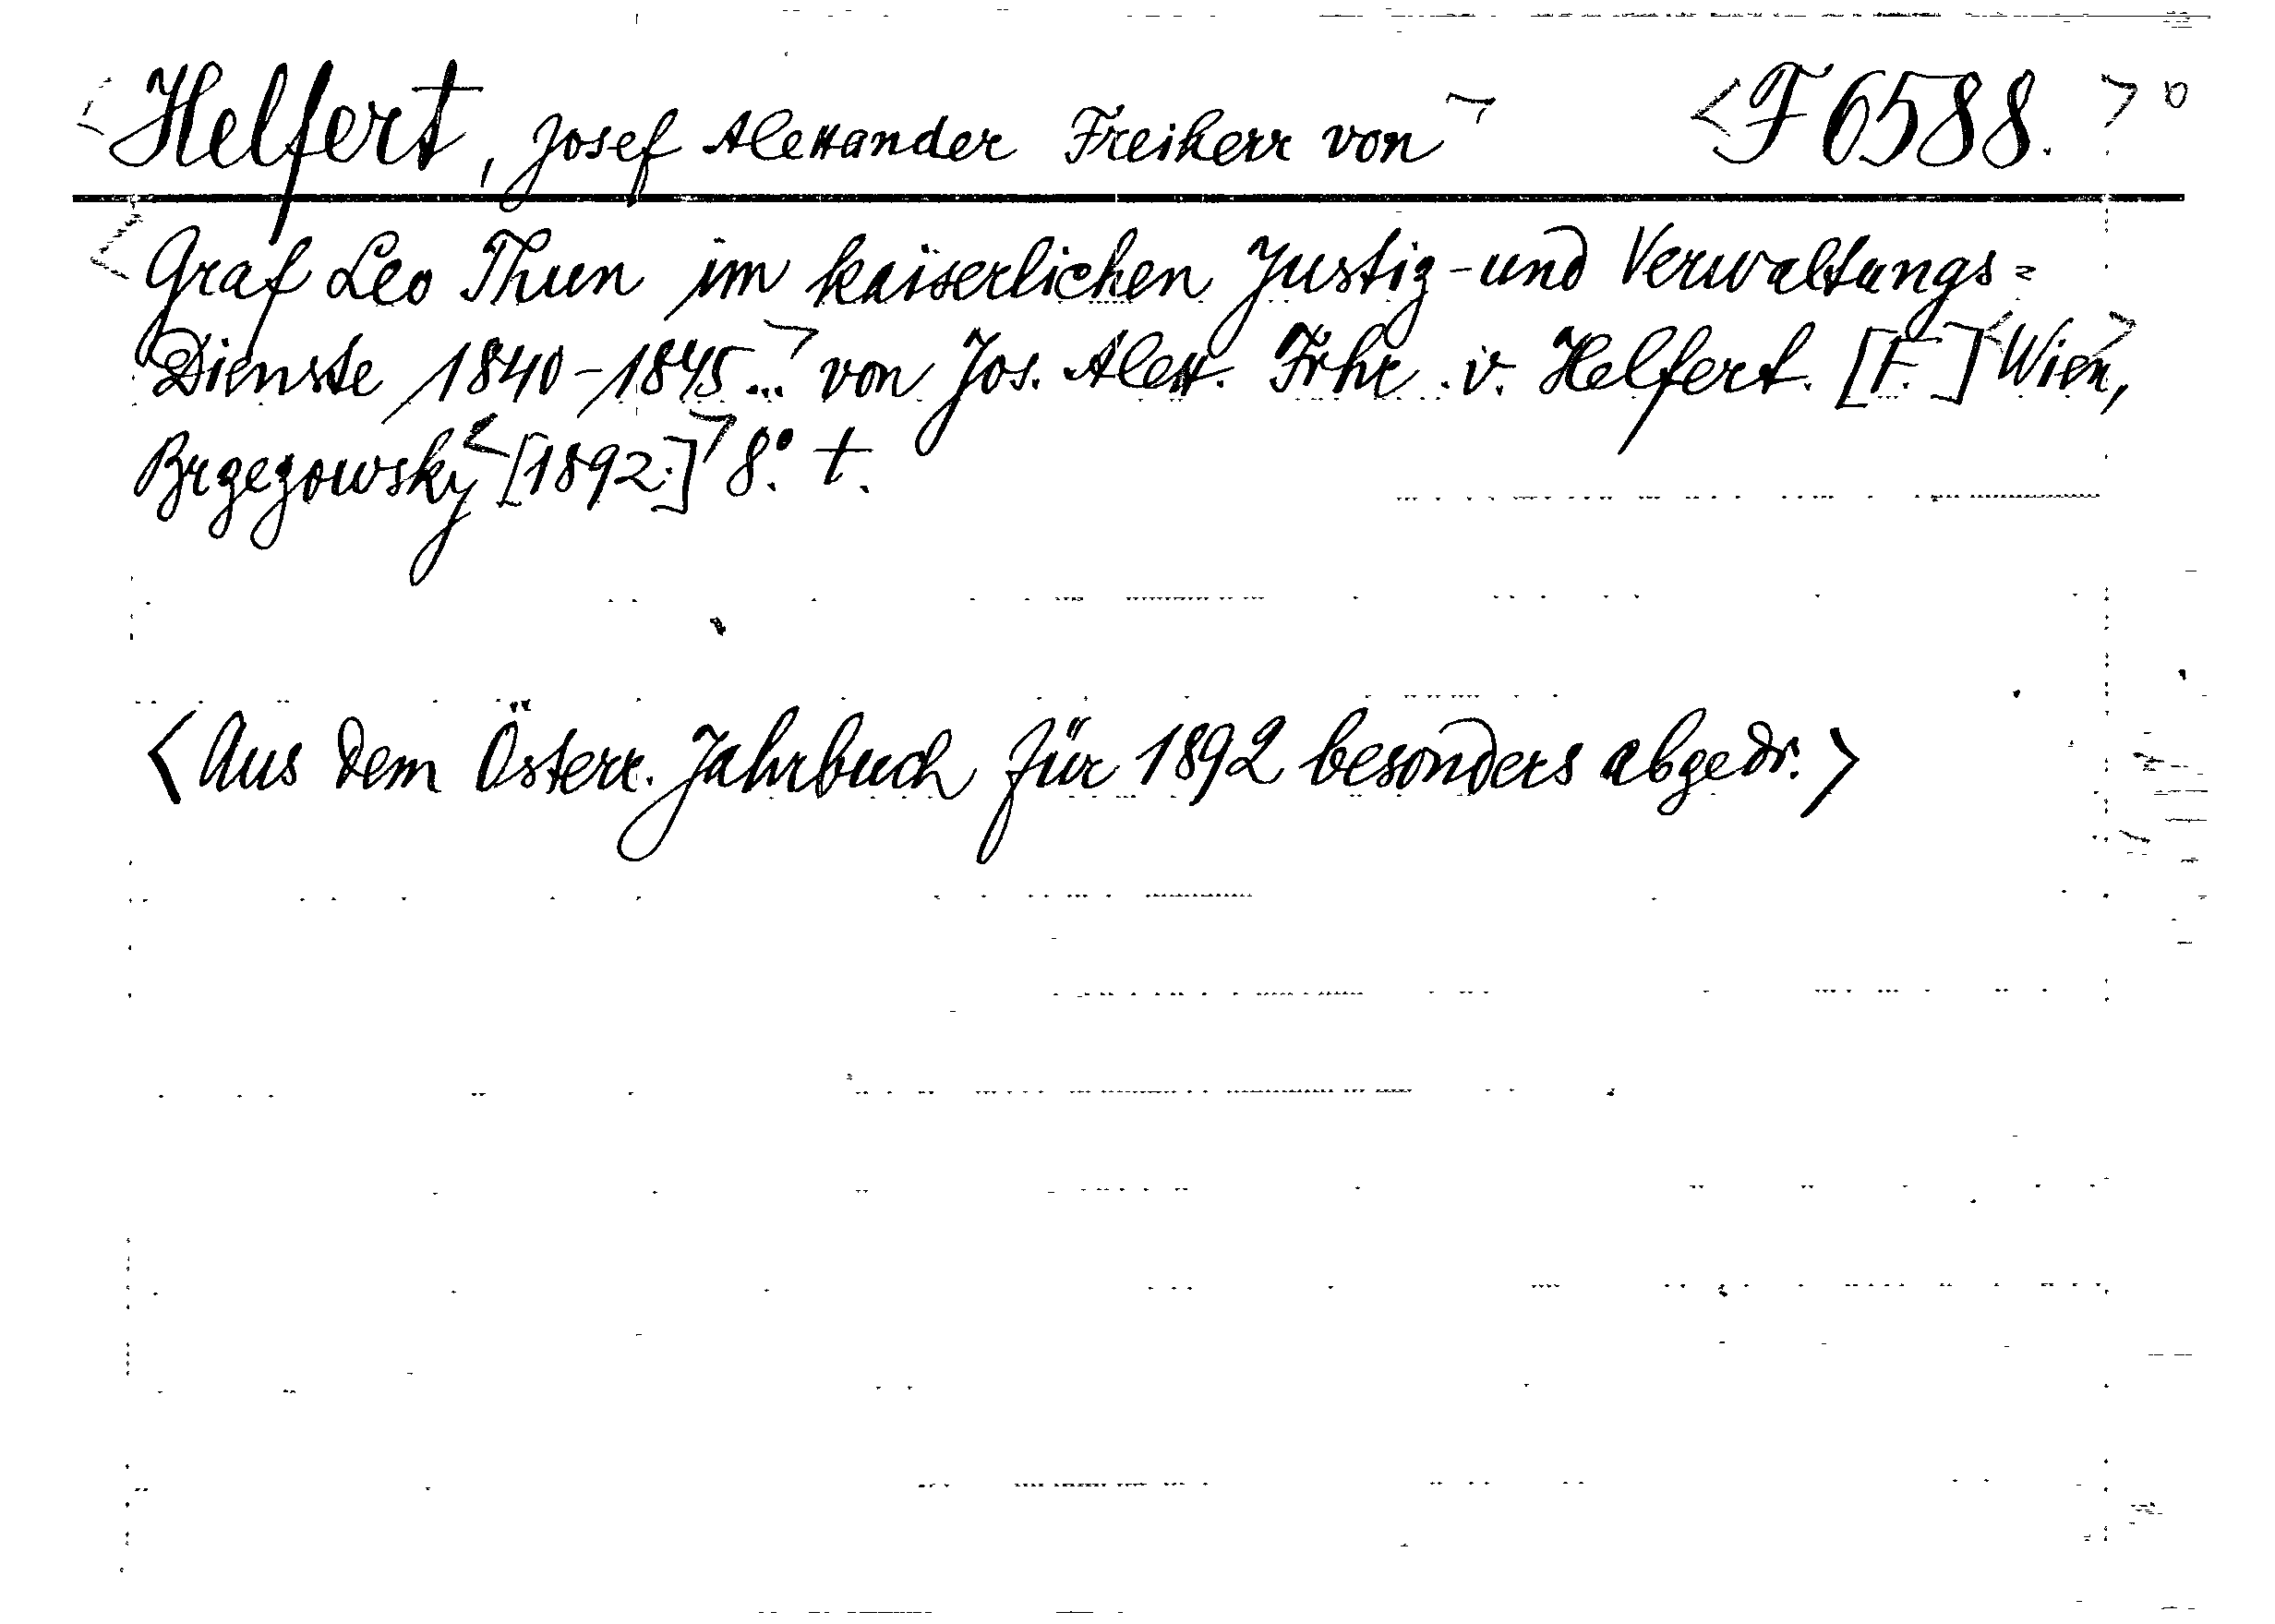 <Helfert, Josef Alexander Freiherr von> <F 6588.>°
<Graf Leo Thun im kaiserlichen Justiz-und Verwaltungs=
Dienste 1840-1845...> von Jos. Alex. Frhr. v. Helfert. [F.] <Wien>,
Brzezowsky <[1892.]> 8.° †.
<Aus dem Österr. Jahrbuch für 1892 besonders abgedr.>